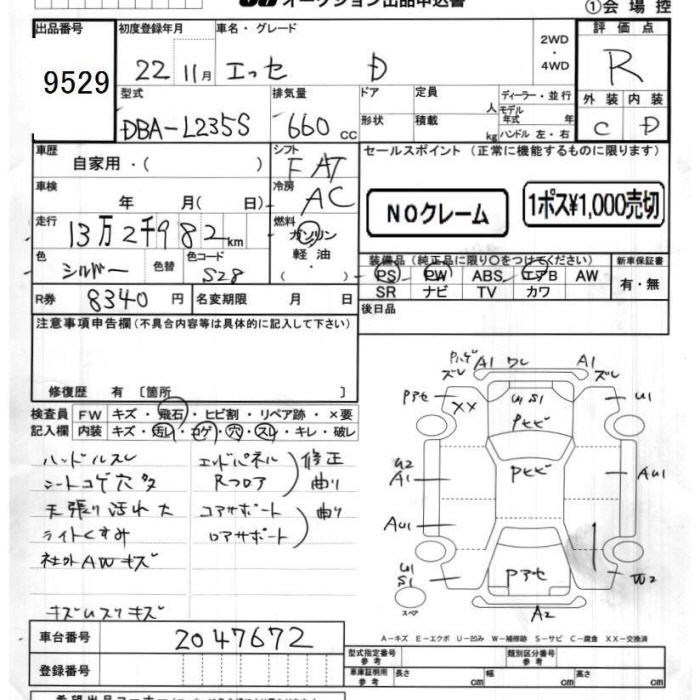 オークション出品申込書 ①会場控
出品番号 初度登録年月 車名・グレード 2WD・4WD 評価点
9529 22 11月 エッセ D R
型式 排気量 ドア 定員 人 ディーラー・並行
外装 内装
DBA-L235S 660cc 形状 積載 kg モデル年式 年
ハンドル 左・右 C D
車歴 自家用・( ) シフト FAT セールスポイント (正常に機能するものに限ります)
車検 年 月( 日) 冷房 AC NOクレーム 1ポス¥1,000売切
走行 13万2千982km 燃料 ガソリン・軽油・( )
色 シルバー 色替 色コード S28 装備品(純正品に限り○をつけてください) 新車保証書
PS PW ABS エアB AW 有・無
R券 8340円 名変期限 月 日 SR ナビ TV カワ
後日品
注意事項申告欄(不具合内容等は具体的に記入して下さい)
修復歴 有〔箇所 〕
検査員 FW キズ・飛石・ヒビ割・リペア跡・×要
記入欄 内装 キズ・汚レ・コゲ・穴・スレ・キレ・破レ
ハンドルスレ エンドパネル 修正
シートコゲ穴多 Rフロア 曲り
天張り汚れ大 コアサポート 曲り
ライトくすみ ロアサポート
社外AWキズ
キズUスリキズ
ズレ A1 ワレ A1 ズレ
Pアセ XX U1 S1 U1
Pヒビ
U2 A1 Pヒビ AU1
AU1
U1 S1 Pアセ W2
スペア A2
A-キズ E-エクボ U-凹み W-補修跡 S-サビ C-腐食 XX-交換済
車台番号 2047672
型式指定番号 参考 類別区分番号 参考
登録番号 車庫証明用 参考 長さ cm 幅 cm 高さ cm
希望出品コーナー